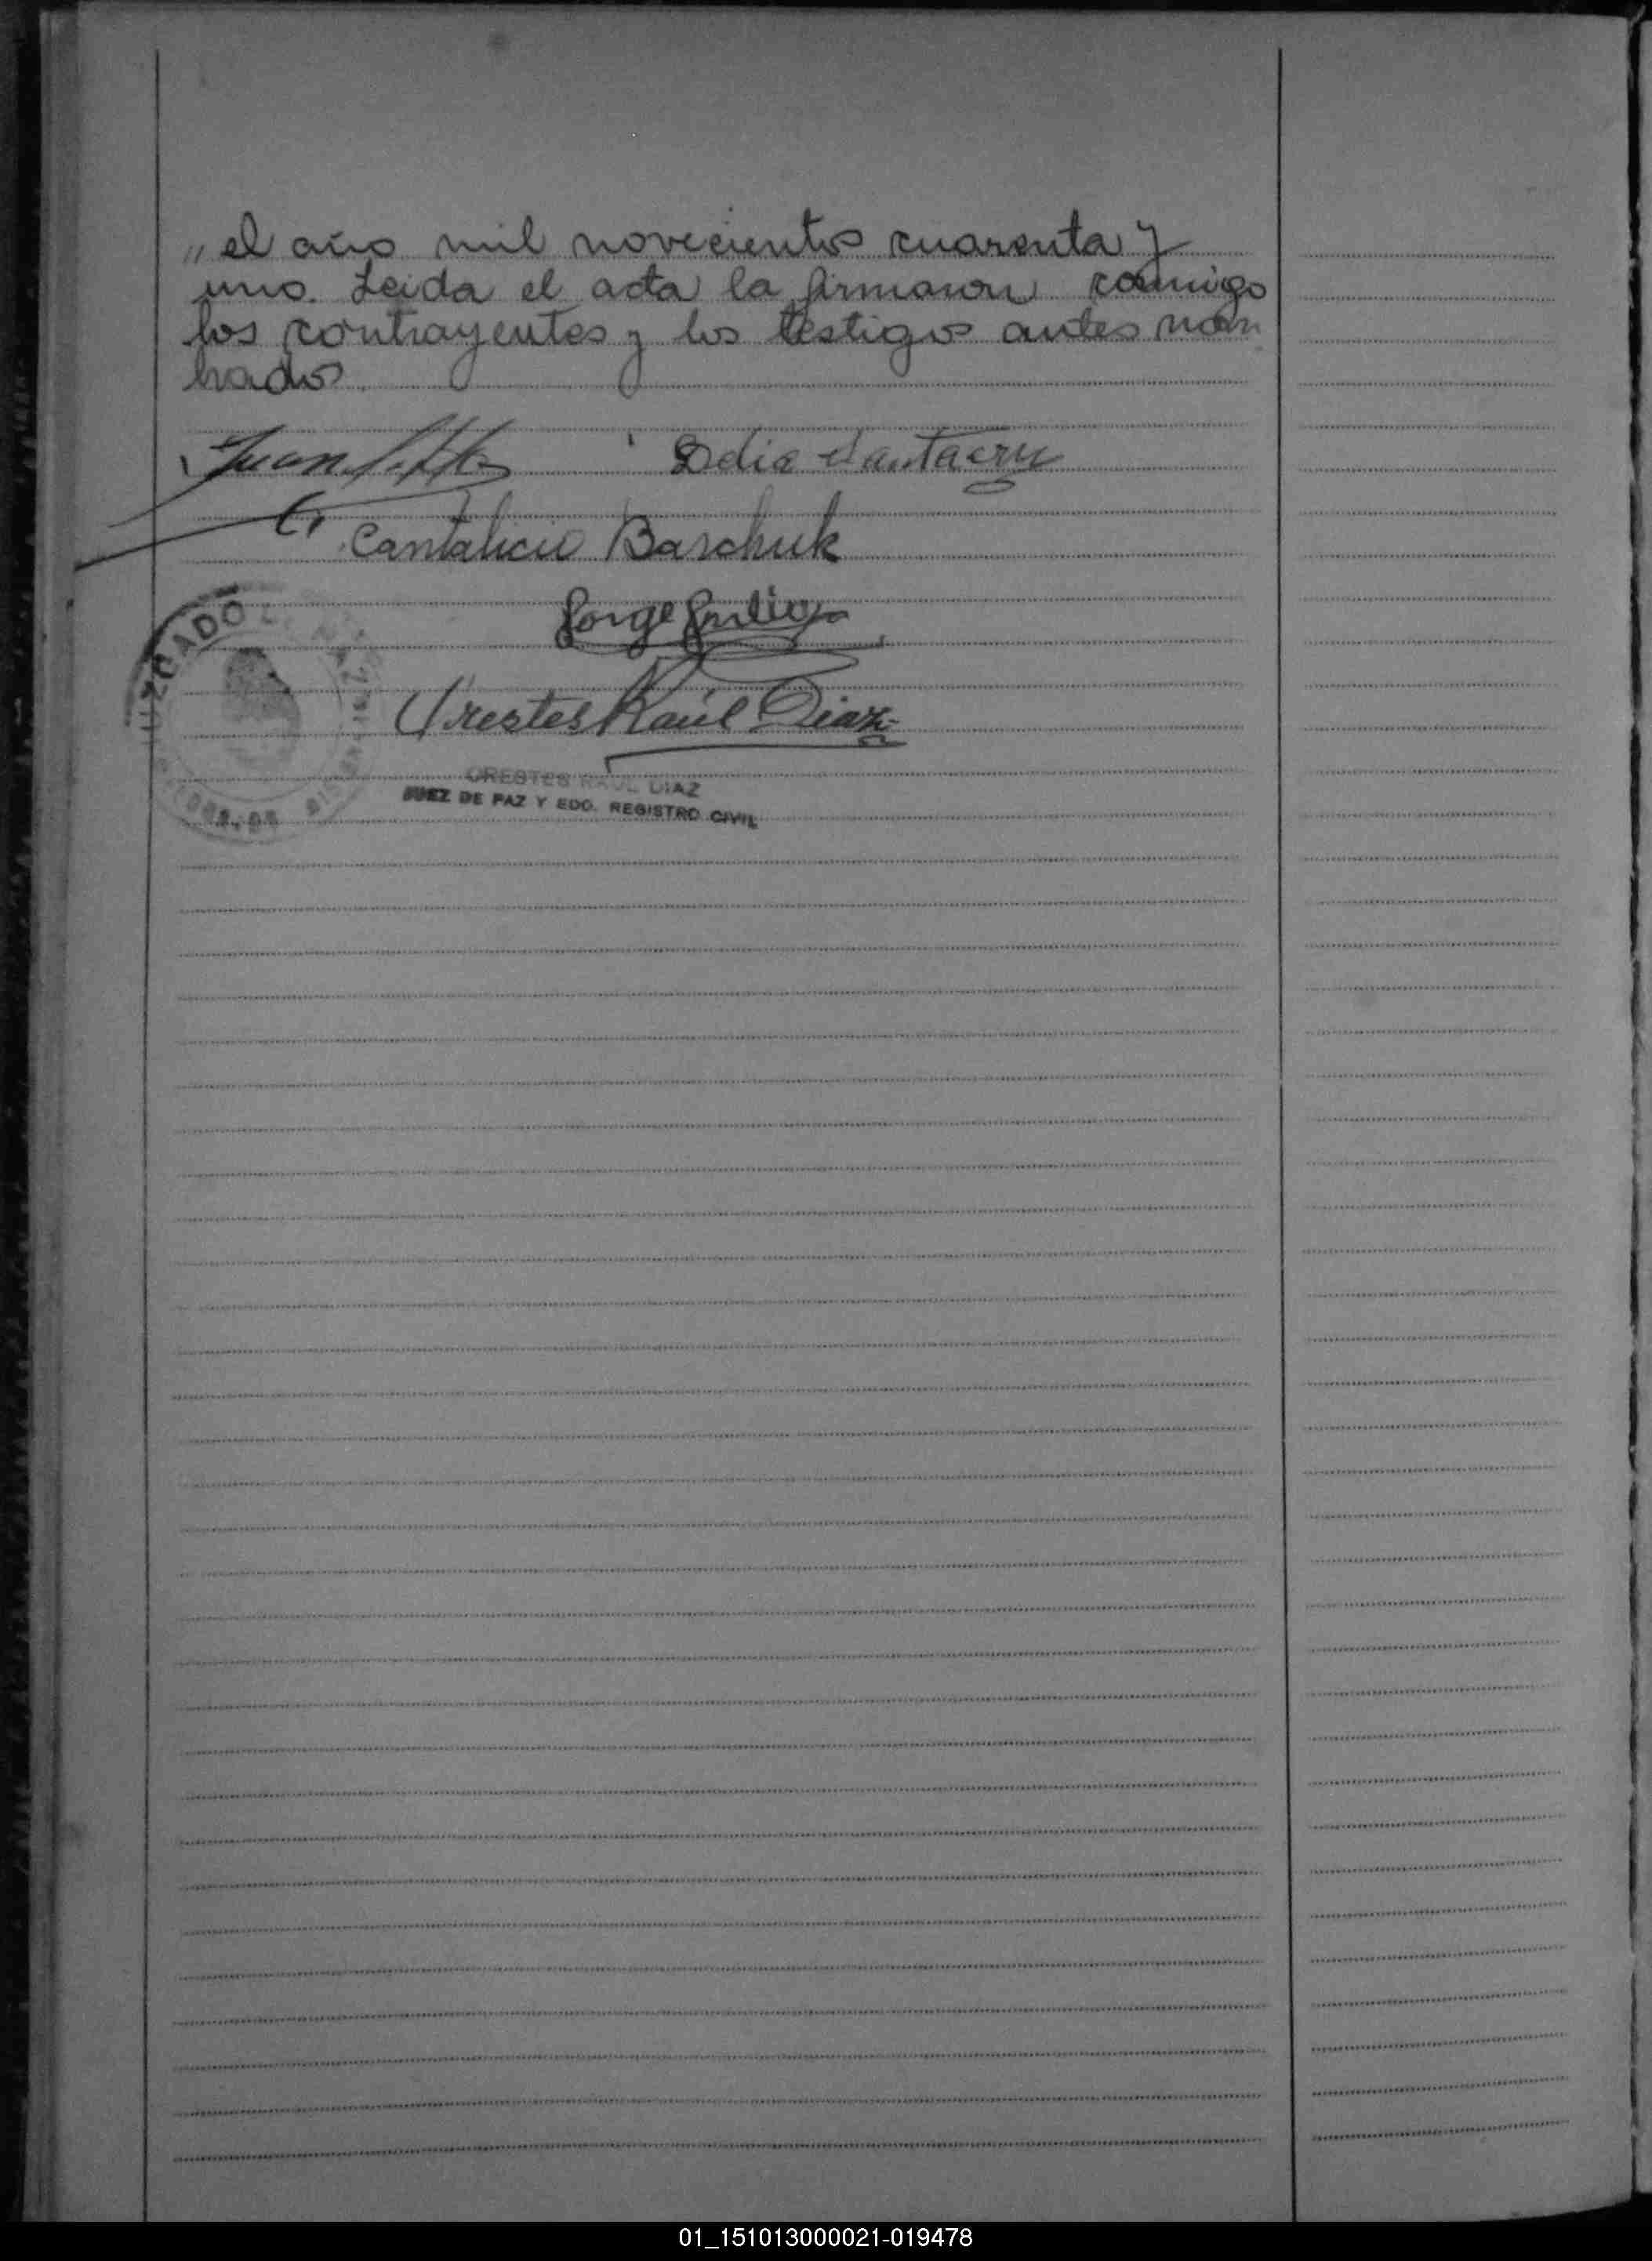 „ el año mil novecientos cuarenta y
uno. Leida el acta la firmaron conmigo
los contrayentes y los testigos antes nom
brados
Juan Delia Santacruz
Cantalicio Barchuk
Jorge
Orestes Raúl Diaz
JUZGADO
ORESTES RAUL DIAZ
JUEZ DE PAZ Y EDO. REGISTRO CIVIL
01_151013000021-019478